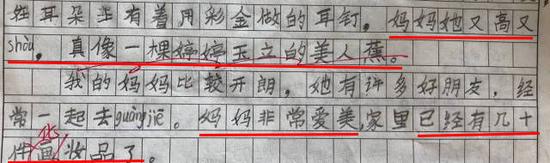 在耳朵上有着用彩金做的耳钉。妈妈她又高又
shòu，真像一棵婷婷玉立的美人蕉。
我的妈妈比较开朗，她有许多好朋友，经
常一起去guàng jiē。妈妈非常爱美，家里已经有几十
件画妆品了。